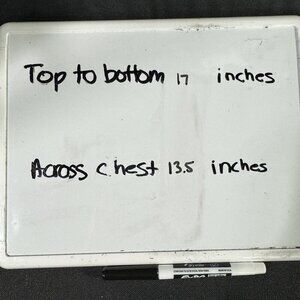 Top to bottom 17 inches
Across chest 13.5 inches